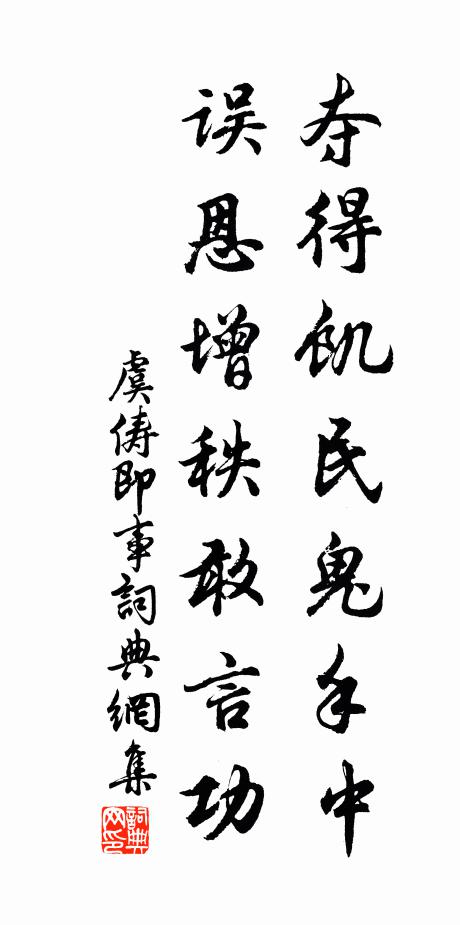 夺得飢民鬼手中
误恩增秩敢言功
虞俦即事詞典網集
詞典网印